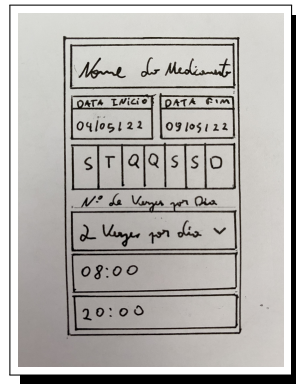 Nome do Medicamento
DATA INÍCIO DATA FIM
04/05/22 09/05/22
S T Q Q S S D
N.º de Vezes por Dia
2 Vezes por dia
08:00
20:00